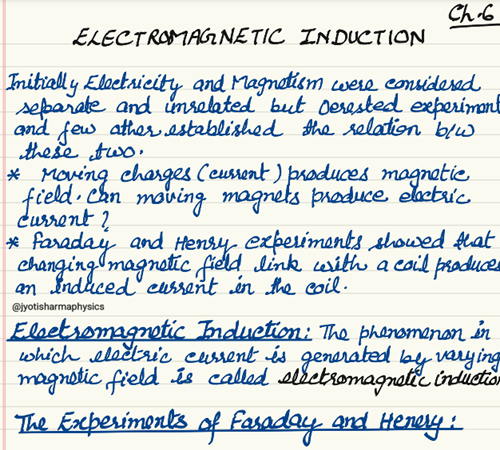 Ch.6
ELECTROMAGNETIC INDUCTION
Initially Electricity and Magnetism were considered
separate and unrelated but Oerested experiment
and few other established the relation b/w
these two.
* Moving charges (current) produces magnetic
field. Can moving magnets produce electric
current?
* Faraday and Henry experiments showed that
changing magnetic field link with a coil produces
an induced current in the coil.
@jyotisharmaphysics
Electromagnetic Induction: The phenomenon in
which electric current is generated by varying
magnetic field is called electromagnetic induction
The Experiments of Faraday and Henery: